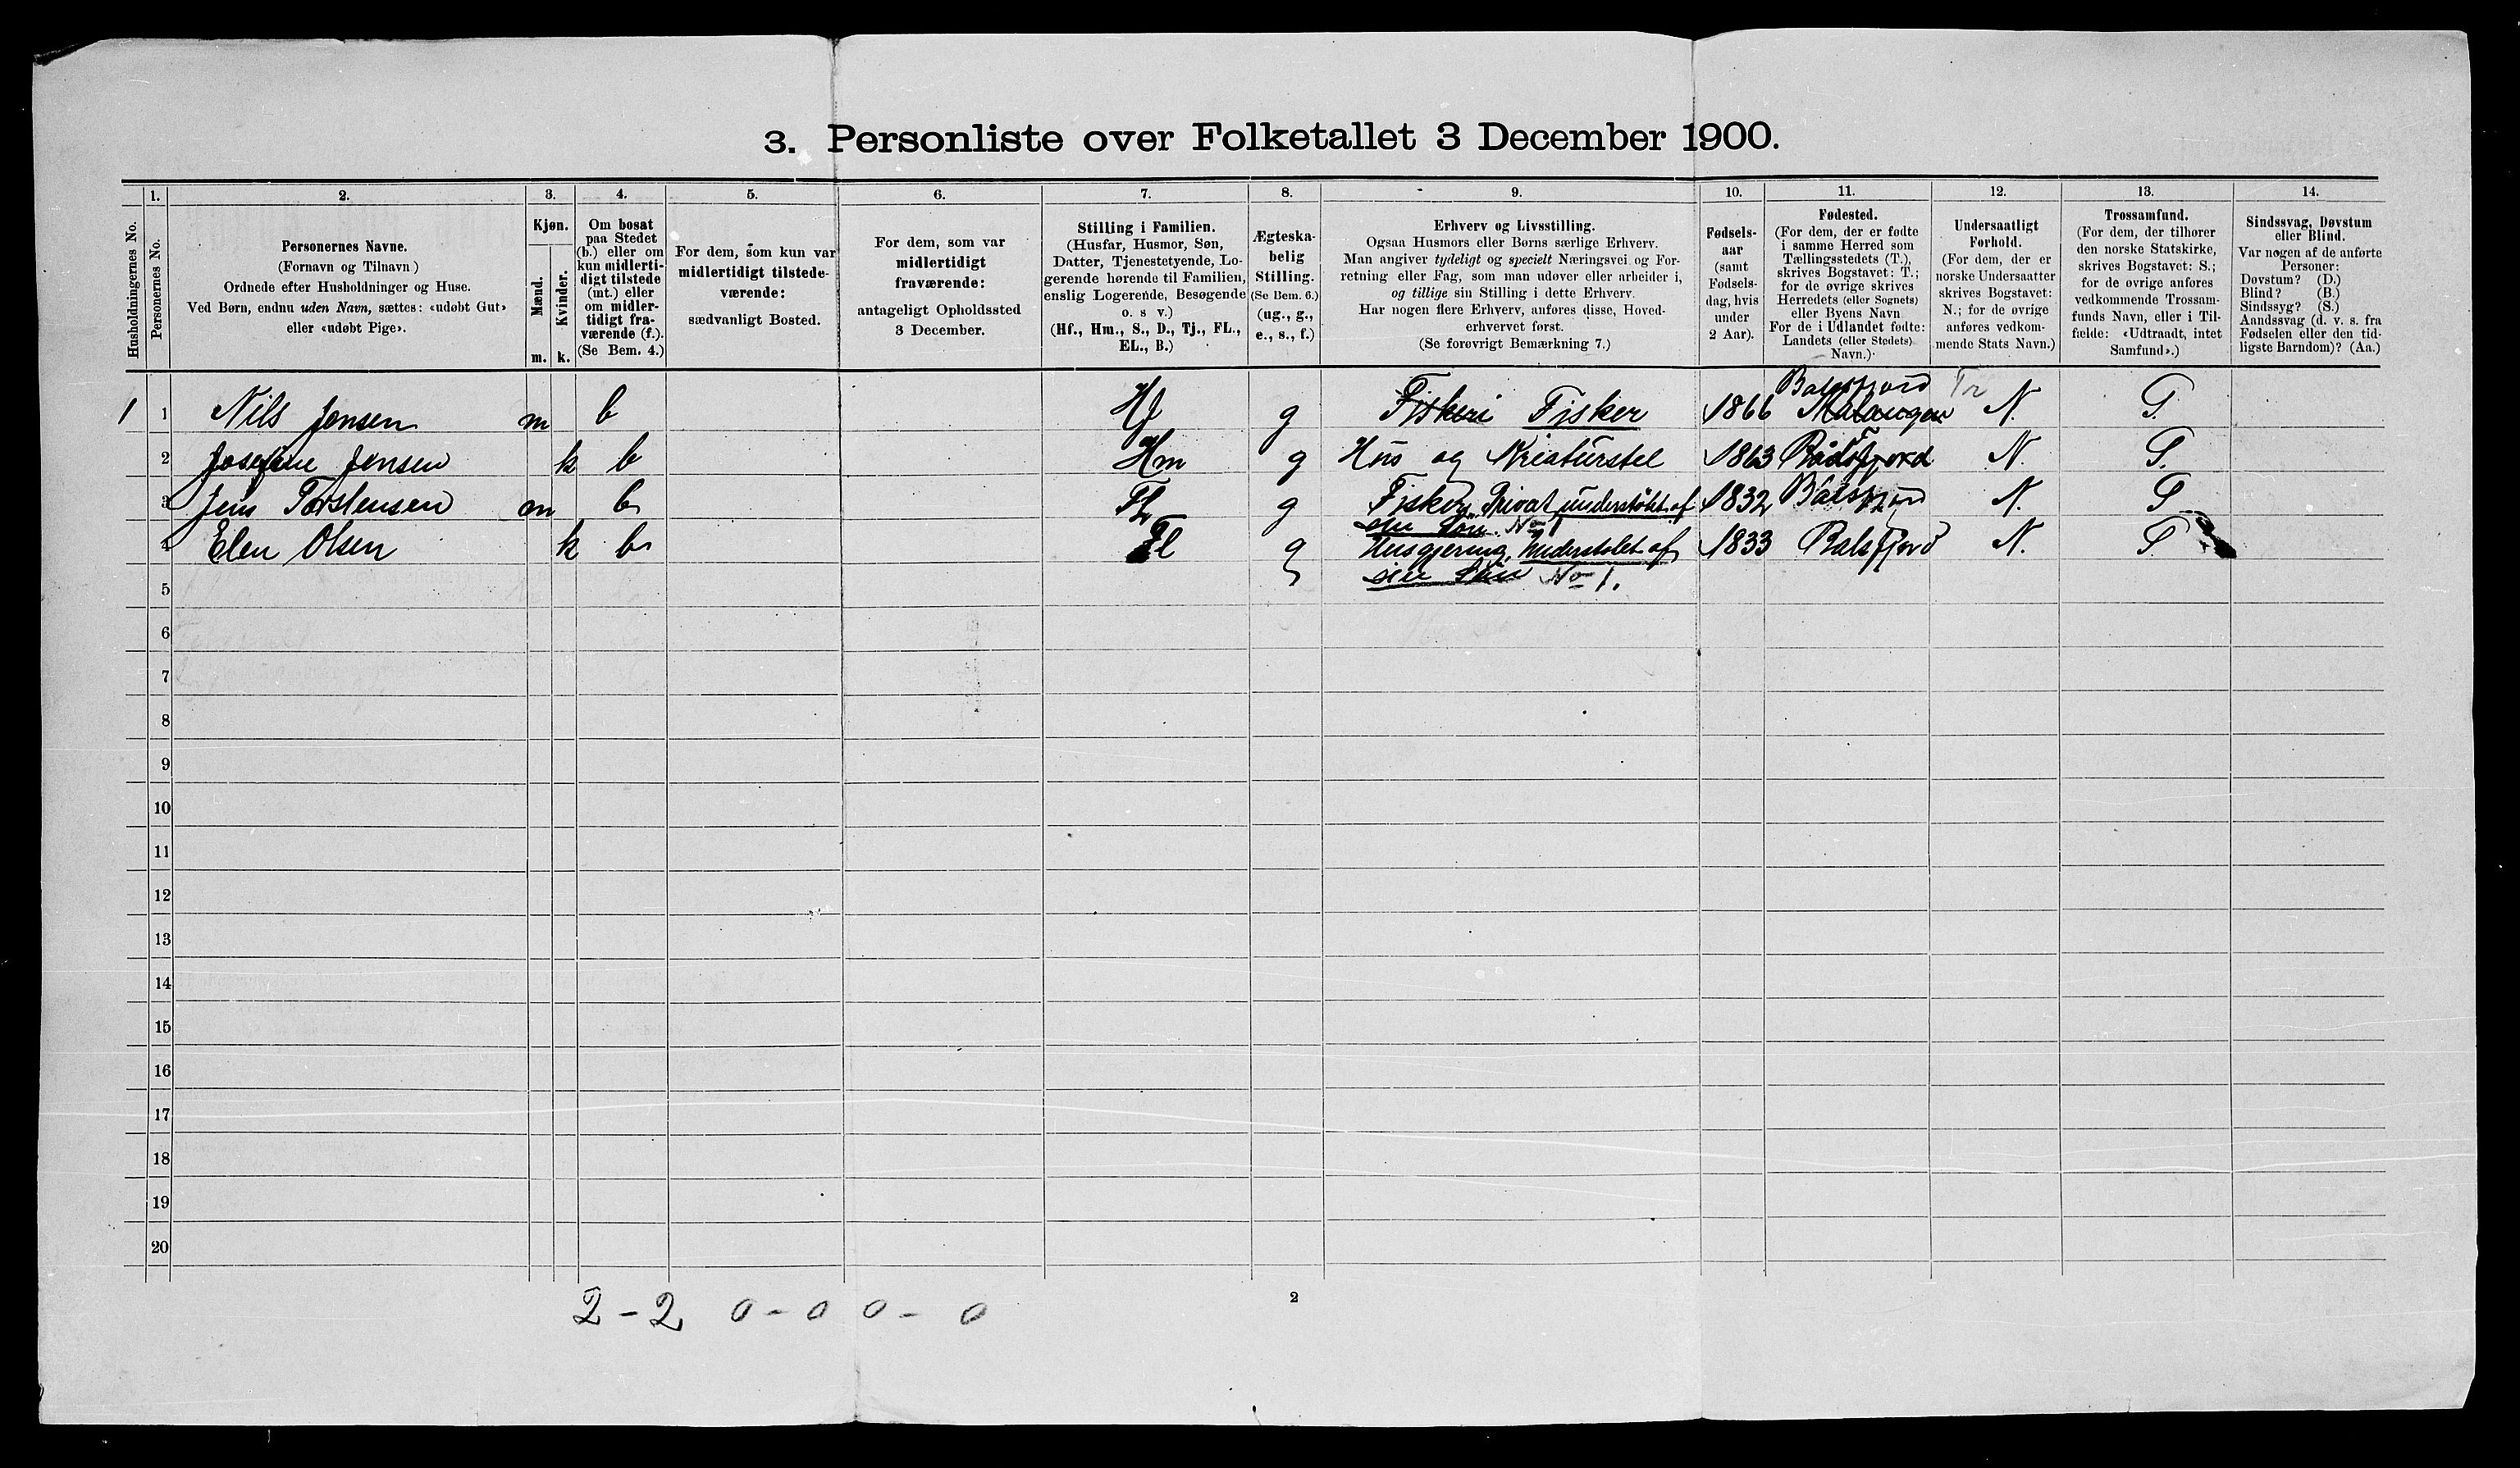 3. Personliste over Folketallet 3 December 1900.
1. 2. 3. 4. 5. 6. 7. 8. 9. 10. 11. 12. 13. 14.
Husholdningernes No.
Personernes No.
Personernes Navne.
(Fornavn og Tilnavn)
Ordnede efter Husholdninger og Huse.
Ved Børn, endnu uden Navn, sættes: «udøbt Gut»
eller «udøbt Pige».
Kjøn.
Mænd.
Kvinder.
m. k.
Om bosat
paa Stedet
(b.) eller om
kun midlerti-
digt tilstede
(mt.) eller
om midler-
tidigt fra-
værende (f.).
(Se Bem. 4.)
For dem, som kun var
midlertidigt tilstede-
værende:
sædvanligt Bosted.
For dem, som var
midlertidigt
fraværende:
antageligt Opholdssted
3 December.
Stilling i Familien.
(Husfar, Husmor, Søn,
Datter, Tjenestetyende, Lo-
gerende hørende til Familien,
enslig Logerende, Besøgende
o. s v.)
(Hf., Hm., S., D., Tj., FL.,
EL., B.)
Ægteska-
belig
Stilling.
(Se Bem. 6.)
(ug., g.,
e., s., f.)
Erhverv og Livsstilling.
Ogsaa Husmors eller Børns særlige Erhverv.
Man angiver tydeligt og specielt Næringsvei og For-
retning eller Fag, som man udøver eller arbeider i,
og tillige sin Stilling i dette Erhverv.
Har nogen flere Erhverv, anføres disse, Hoved-
erhvervet først.
(Se forøvrigt Bemærkning 7.)
Fødsels-
aar
(samt
Fødsels-
dag, hvis
under
2 Aar).
Fødested.
(For dem, der er fødte
i samme Herred som
Tællingsstedets (T.),
skrives Bogstavet: T.;
for de øvrige skrives
Herredets (eller Sognets)
eller Byens Navn
For de i Udlandet fødte:
Landets (eller Stedets)
Navn.)
Undersaatligt
Forhold.
(For dem, der er
norske Undersaatter
skrives Bogstavet:
N.; for de øvrige
anføres vedkom-
mende Stats Navn.)
Trossamfund.
(For dem, der tilhører
den norske Statskirke,
skrives Bogstavet: S.;
for de øvrige anføres
vedkommende Trossam-
funds Navn, eller i Til-
fælde: «Udtraadt, intet
Samfund».)
Sindssvag, Døvstum
eller Blind.
Var nogen af de anførte
Personer:
Døvstum? (D.)
Blind? (B.)
Sindssyg? (S.)
Aandssvag (d. v. s. fra
Fødselen eller den tid-
ligste Barndom)? (Aa.)
Balsfjord Tr
1 1 Nils Jensen m b Hf g Fiskeri Fisker 1866 Malangen N. S.
2 Josefine Jensen k b Hm g Hus og Kreaturstel 1863 N. S.
3 Jens Torstensen m b Fl g Fisker, Privat understøttet af 1832 Balsfjord N. S
sin Søn. No 1
4 Elen Olsen k b Fl g Husgjerning, understøttet af 1833 Balsfjord N. S
sin Søn No 1.
5
6
7
8
9
10
11
12
13
14
15
16
17
18
19
20
2 - 2 0 - 0 0 - 0
2